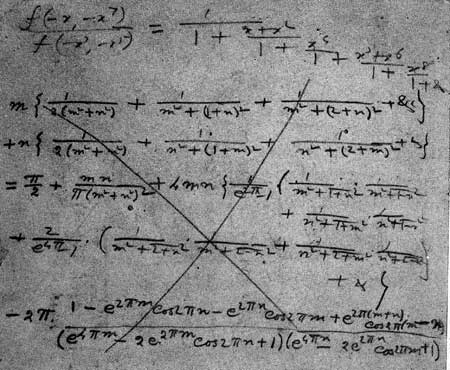 f(-x, -x⁷) / f(-x³, -x⁵) = 1/1 + x+x²/1 + x⁴/1 + x³+x⁶/1 + x⁸/1+&
m { 1/2(m²+n²) + 1/m²+(1+n)² + 1/m²+(2+n)² + &c }
+n { 1/2(m²+n²) + 1/n²+(1+m)² + 1/n²+(2+m)² + & }
= π/2 + mn/π(m²+n²)² + 4mn { 1/e^{2π}-1 ( 1/m²+1+n² · 1/m²+1-n²
+ 1/n²+1+m² · 1/n²+1-m²
+ 2/e^{4π}-1 · ( 1/m²+2+n² · 1/m²+2-n² + 1/n²+2+m² · 1/n²+2-m²
+ & }
- 2π · 1 - e^{2πm} cos2πn - e^{2πn} cos2πm + e^{2π(m+n)} cos2π(m-n) / (e^{4πm} - 2e^{2πm} cos2πn+1)(e^{4πn} - 2e^{2πn} cos2πm+1)